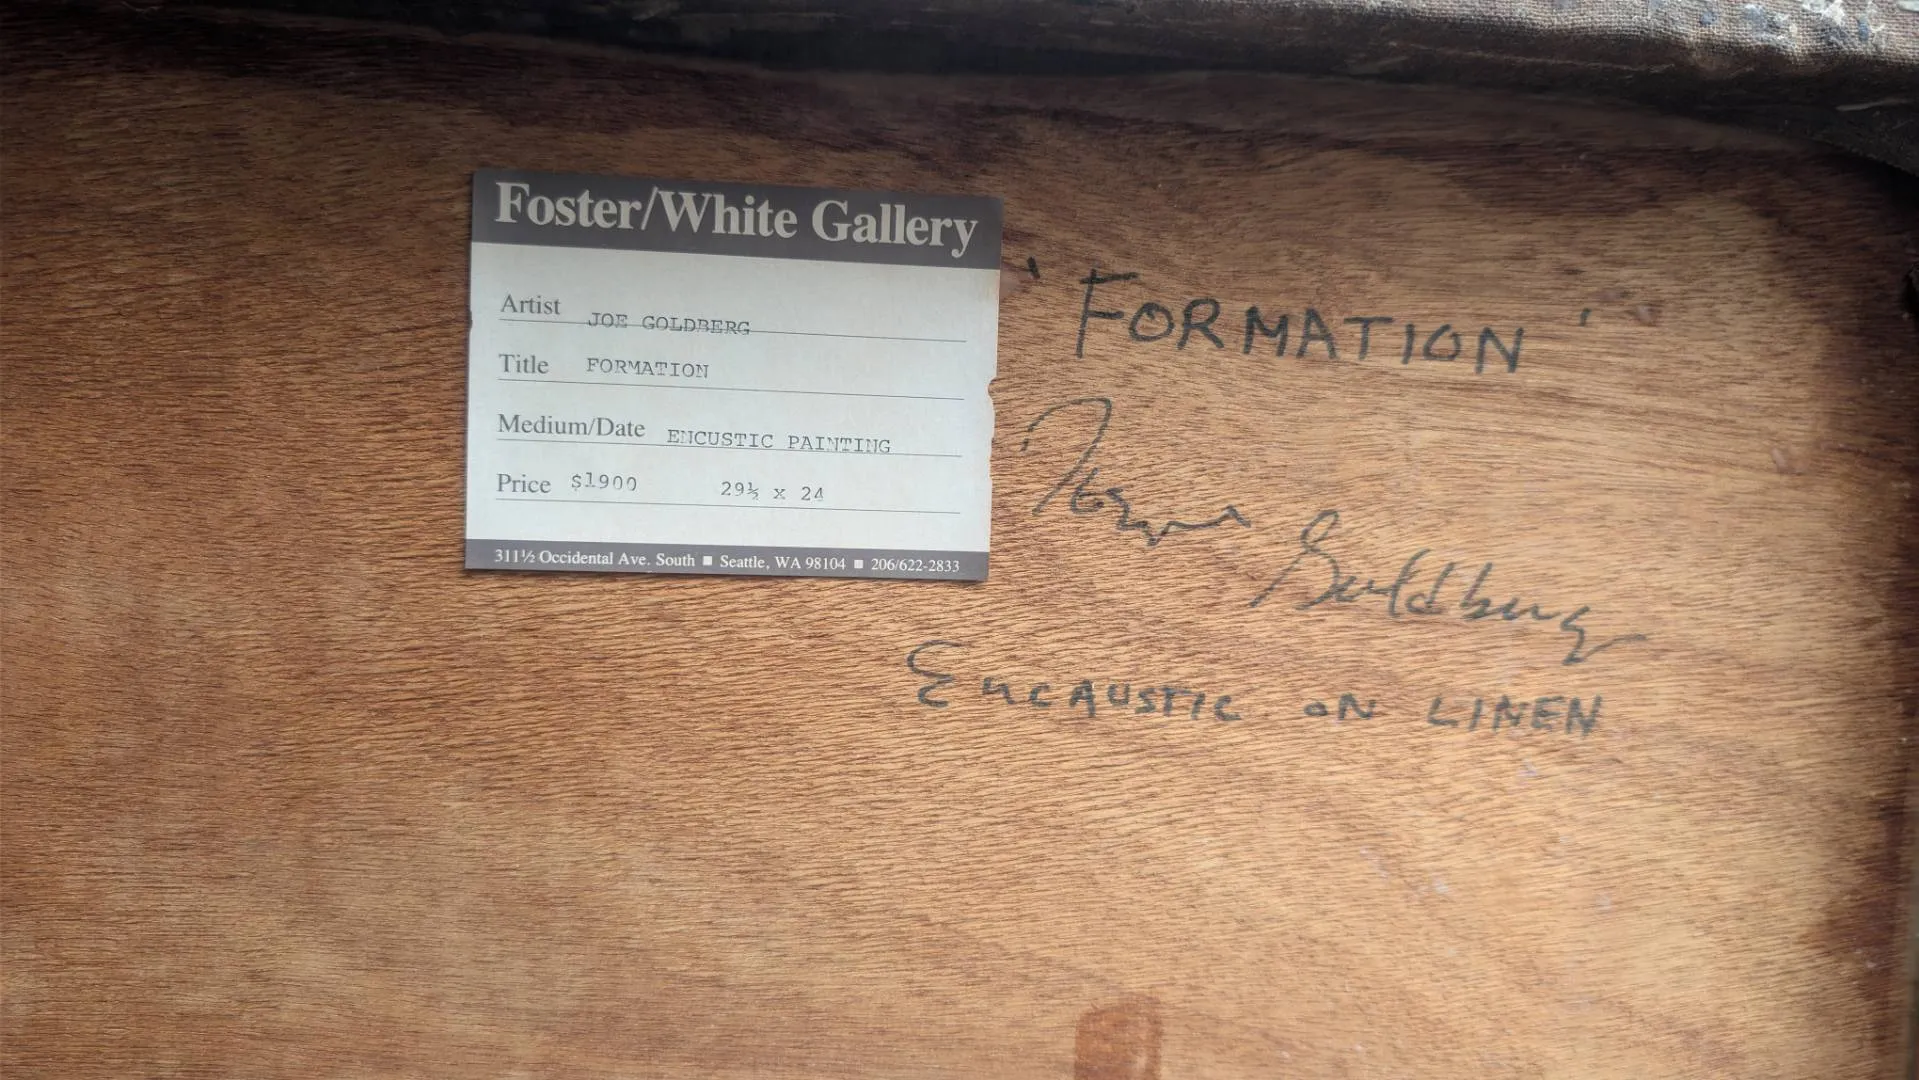 Foster/White Gallery
Artist JOE GOLDBERG
Title FORMATION
Medium/Date ENCUSTIC PAINTING
Price $1900 29½ x 24
311½ Occidental Ave. South ■ Seattle, WA 98104 ■ 206/622-2833
'FORMATION'
Goldberg
ENCAUSTIC ON LINEN